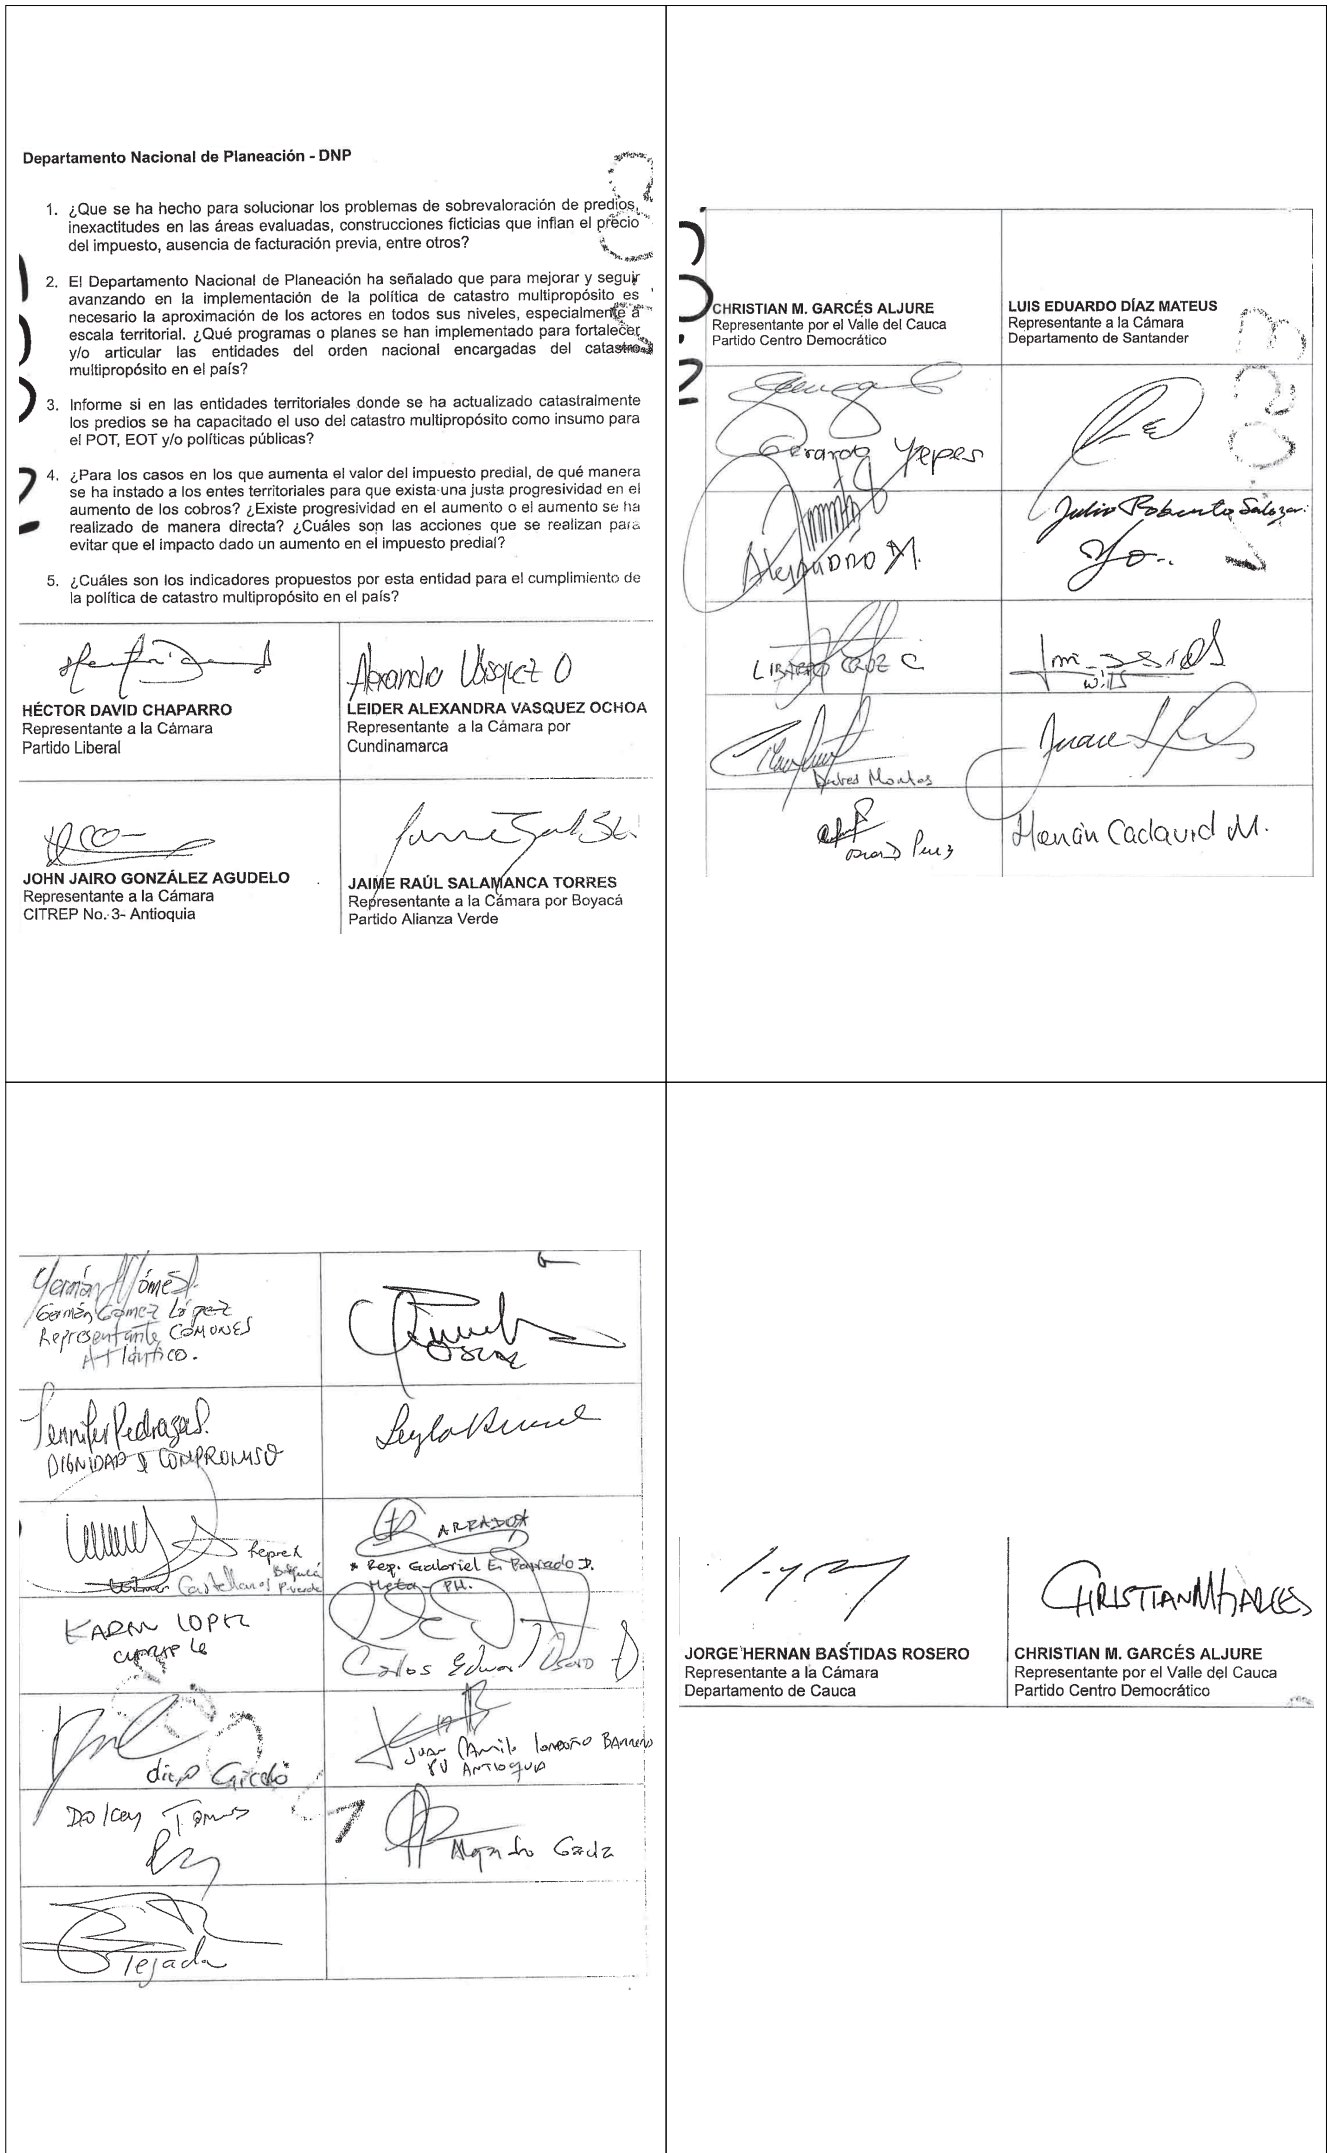 Departamento Nacional de Planeación - DNP
1. ¿Que se ha hecho para solucionar los problemas de sobrevaloración de predios,
inexactitudes en las áreas evaluadas, construcciones ficticias que inflan el precio
del impuesto, ausencia de facturación previa, entre otros?
2. El Departamento Nacional de Planeación ha señalado que para mejorar y seguir
avanzando en la implementación de la política de catastro multipropósito es
necesario la aproximación de los actores en todos sus niveles, especialmente a
escala territorial. ¿Qué programas o planes se han implementado para fortalecer
y/o articular las entidades del orden nacional encargadas del catastro
multipropósito en el país?
3. Informe si en las entidades territoriales donde se ha actualizado catastralmente
los predios se ha capacitado el uso del catastro multipropósito como insumo para
el POT, EOT y/o políticas públicas?
4. ¿Para los casos en los que aumenta el valor del impuesto predial, de qué manera
se ha instado a los entes territoriales para que exista una justa progresividad en el
aumento de los cobros? ¿Existe progresividad en el aumento o el aumento se ha
realizado de manera directa? ¿Cuáles son las acciones que se realizan para
evitar que el impacto dado un aumento en el impuesto predial?
5. ¿Cuáles son los indicadores propuestos por esta entidad para el cumplimiento de
la política de catastro multipropósito en el país?
Alexandra Vásquez O
HÉCTOR DAVID CHAPARRO
Representante a la Cámara
Partido Liberal
LEIDER ALEXANDRA VASQUEZ OCHOA
Representante a la Cámara por
Cundinamarca
JOHN JAIRO GONZÁLEZ AGUDELO
Representante a la Cámara
CITREP No. 3- Antioquia
JAIME RAÚL SALAMANCA TORRES
Representante a la Cámara por Boyacá
Partido Alianza Verde
CHRISTIAN M. GARCÉS ALJURE
Representante por el Valle del Cauca
Partido Centro Democrático
LUIS EDUARDO DÍAZ MATEUS
Representante a la Cámara
Departamento de Santander
Gerardo Yepes
Julio Roberto Salazar
Alejandro M.
LIBARDO CRUZ C
Wills
Andres Montes
Oscar D Perez
Hernán Cadavid M.
Germán Gómez
Germán Gómez López
Representante COMUNES
Atlántico.
Jennifer Pedraza S.
DIGNIDAD & COMPROMISO
Rep. Gabriel E. Parrado D.
Meta - PH.
Castellanos
KAREN LOPEZ
Carlos Eduardo Osorio
Juan Camilo Londoño Barrera
AV ANTIOQUIA
diego Caicedo
Dolcey Torres
Alejandro García
Tejada
CHRISTIAN M GARCES
JORGE HERNAN BASTIDAS ROSERO
Representante a la Cámara
Departamento de Cauca
CHRISTIAN M. GARCÉS ALJURE
Representante por el Valle del Cauca
Partido Centro Democrático